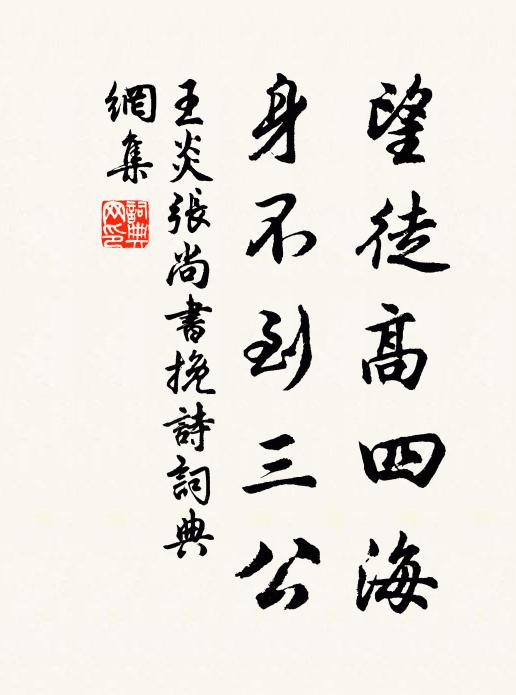 望徒高四海
身不到三公
王炎張尚書挽詩詞典
網集
詞典
网印